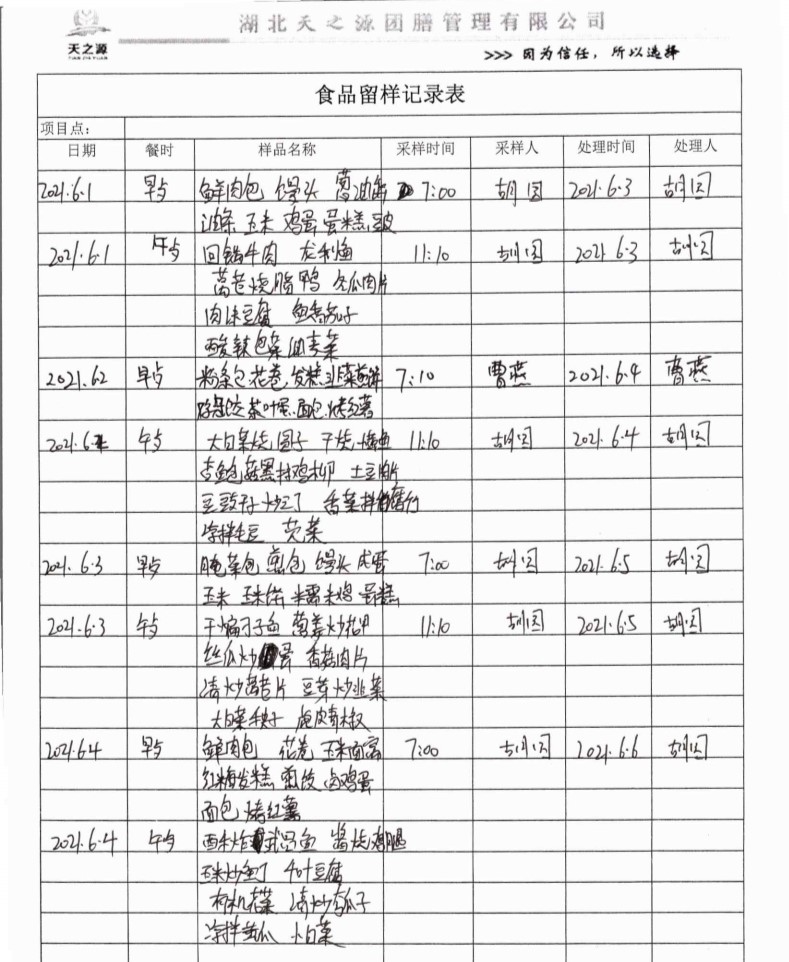 湖北天之源团膳管理有限公司
天之源
TIAN ZHI YUAN
>>> 因为信任，所以选择
食品留样记录表
项目点：
日期 餐时 样品名称 采样时间 采样人 处理时间 处理人
2021.6.1 早点 鲜肉包 馒头 葱油饼 7:00 胡园 2021.6.3 胡园
油条 玉米 鸡蛋 蛋糕 豆皮
2021.6.1 午点 回锅牛肉 龙利鱼 11:10 胡园 2021.6.3 胡园
莴苣烧腊鸭 冬瓜肉片
肉沫豆腐 鱼香茄子
酸辣包菜
2021.6.2 早点 粉条包 花卷 发糕 韭菜 7:10 曹燕 2021.6.4 曹燕
茶叶蛋 面包 烤红薯
2021.6.2 午点 大白菜烧圆子 干烧 鱼 11:10 胡园 2021.6.4 胡园
杏鲍菇黑椒鸡柳 土豆肉片
豆豉干子炒三丁 香菜拌腐竹
凉拌毛豆 苋菜
2021.6.3 早点 腌菜包 煎包 馒头 咸蛋 7:00 胡园 2021.6.5 胡园
玉米 糯米鸡 蛋糕
2021.6.3 午点 干煸刁子鱼 葱姜炒花甲 11:10 胡园 2021.6.5 胡园
丝瓜炒蛋 香菇肉片
清炒莴苣片 豆芽炒韭菜
大白菜 虎皮青椒
2021.6.4 早点 鲜肉包 花卷 玉米面窝 7:00 胡园 2021.6.6 胡园
红糖发糕 煎饺 卤鸡蛋
面包 烤红薯
2021.6.4 午点 武昌鱼 酱烧鸡腿
玉米炒 丁 千叶豆腐
有机花菜 清炒 瓜子
凉拌黄瓜 小白菜